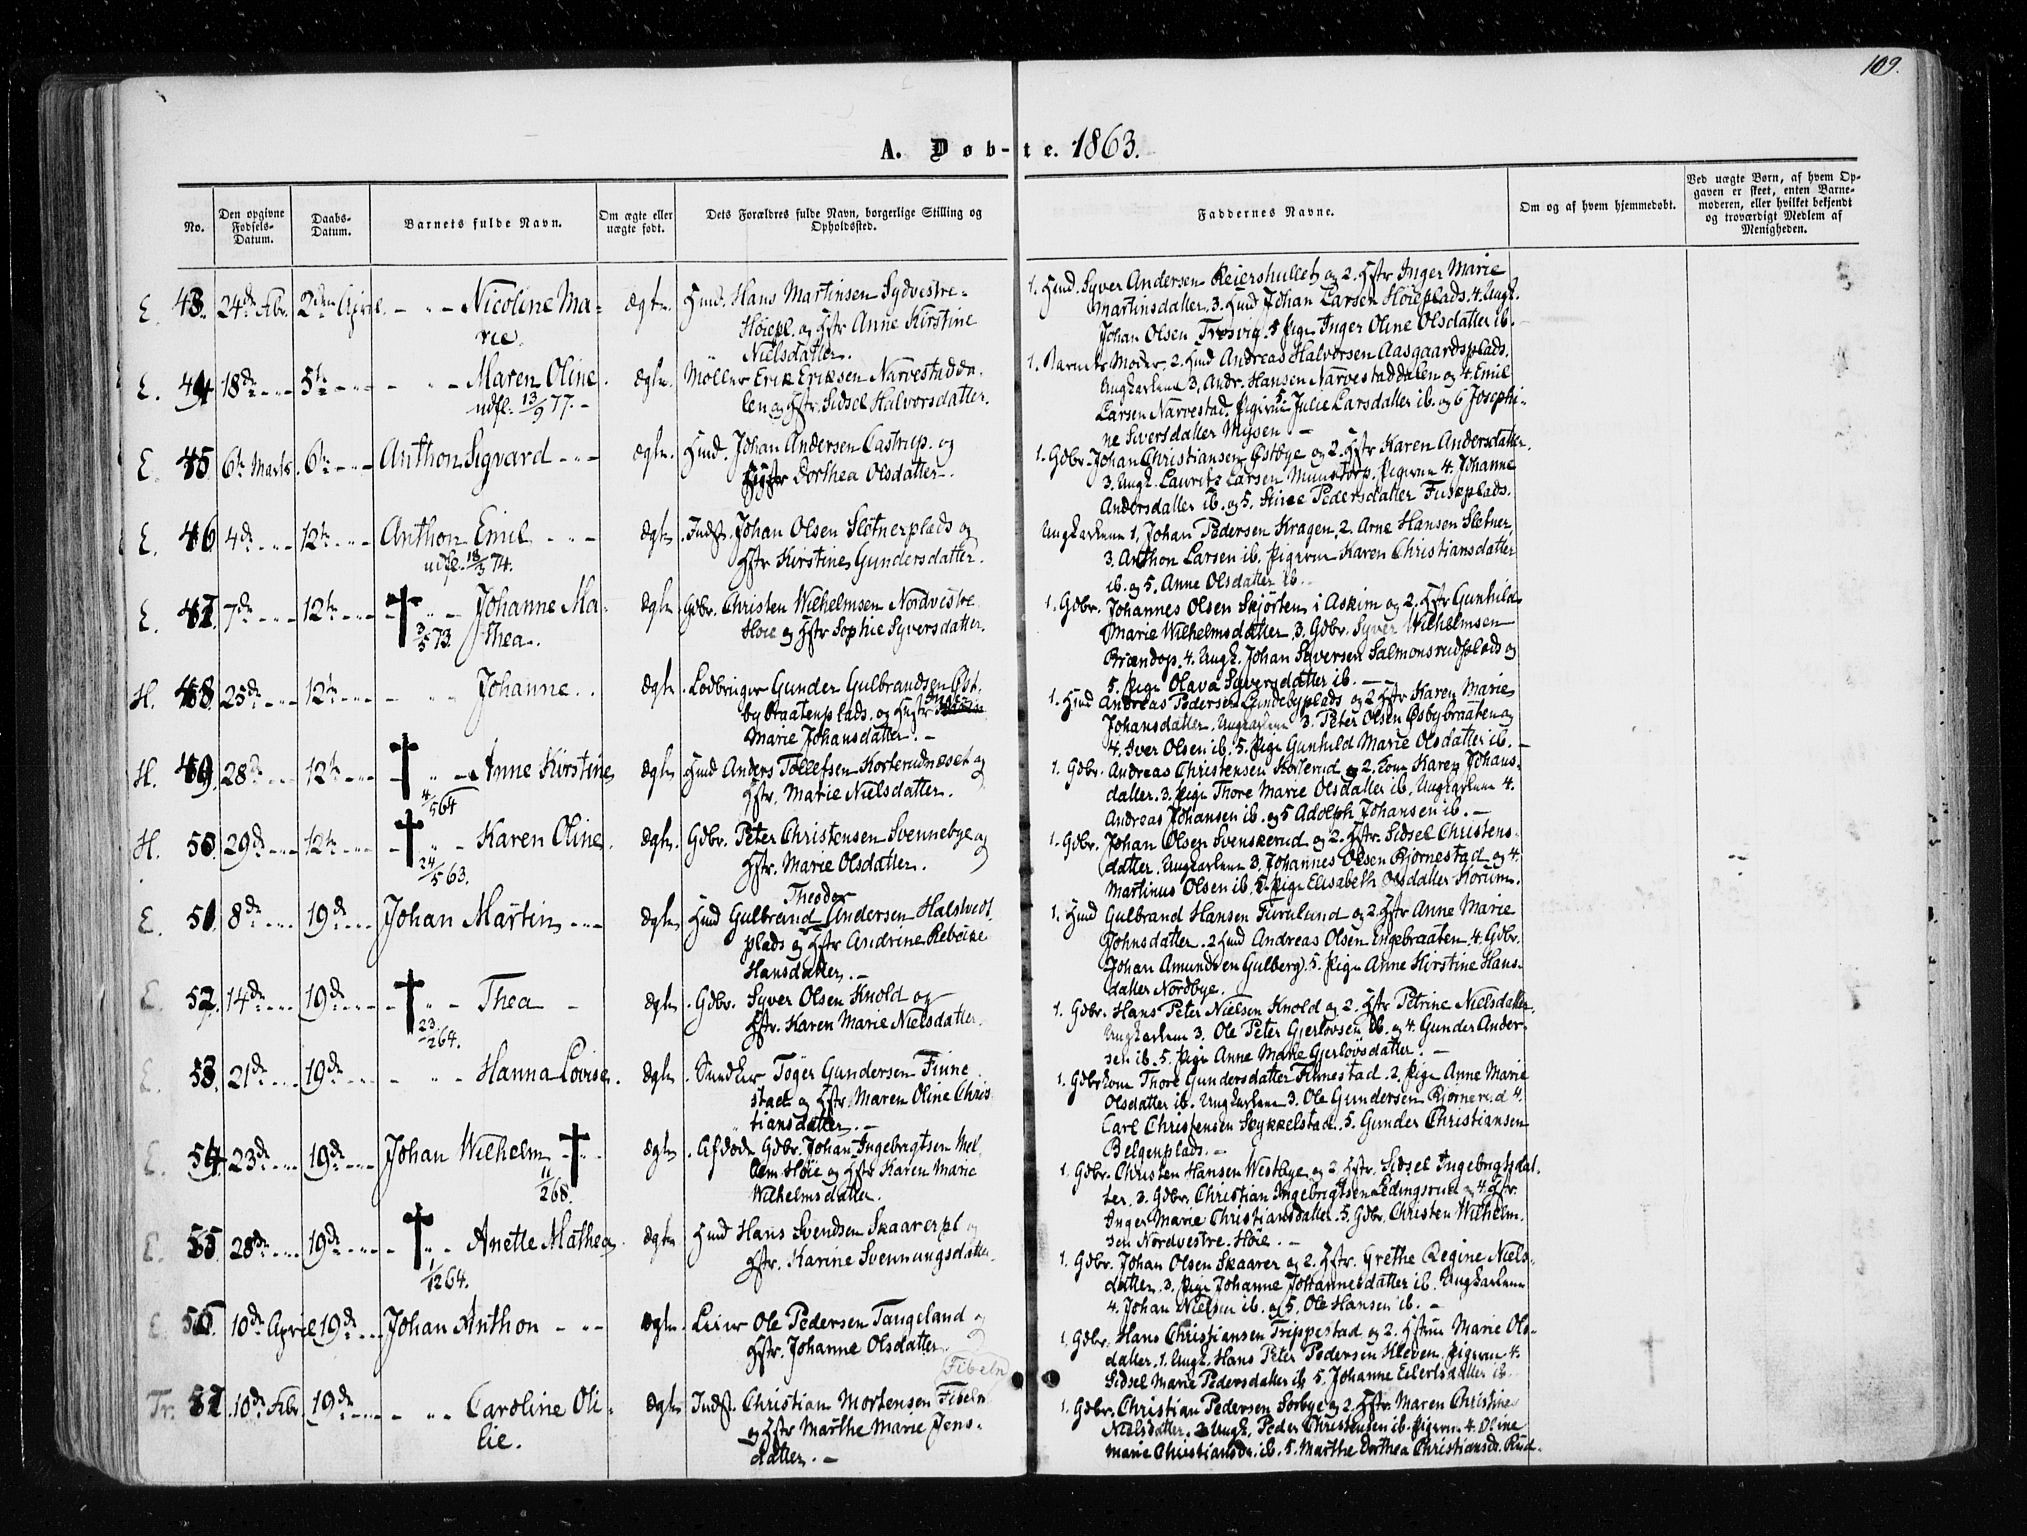 109.
A. Døb-te. 1863.
No.
Den opgivne Fødsels-Datum.
Daabs-Datum.
Barnets fulde Navn.
Om ægte eller uægte født.
Dets Forældres fulde Navn, borgerlige Stilling og Opholdssted.
Faddernes Navne.
Om og af hvem hjemmedøbt.
Ved uægte Børn, af hvem Opgaven er skeet, enten Barnemoderen, eller hvilket bekjendt og troværdigt Medlem af Menigheden.
E. 43. 24de Febr. 2den April. - " - Nicoline Ma-
rie.
Ægte. Husmd. Hans Martinsen Sydvestre-
Høiepl. og Hstr Anne Kirstine
Nielsdatter.
1. Husmd. Syver Andersen Reiershullet og 2. Hstr Inger Marie
Martinsdatter. 3. Husmd Johan Larsen Høieplads. 4. Ungk.
Johan Olsen Tresvig. 5 Pige Inger Oline Olsdatter ib.
E. 44 18de 5te - " - Maren Oline.
udfl. 13/9 77.-
Ægte. Møller Erik Eriksen Narvestadda-
len og Hstr. Sidsel Halvorsdatter.
1. Barnets Moder. 2. Husmd Andreas Halvorsen Aasgaardsplads.
Ungkarlene 3. Andr. Hansen Narvestaddalen og 4. Emil
Larsen Narvestad. Pigerne 5 Julie Larsdatter ib. og 6 Josephi-
ne Siversdatter Mysen -
E. 45 6te Marts. 6te Anthon Sigvard
Ægte. Husmd. Johan Andersen Castrup. og
Hstr Dorthea Olsdatter.
1. Gdbr. Johan Christiansen Østbye og 2. Hstr Karen Andersdatter.
3. Ungk. Laurits Larsen Munstorp. Pigerne 4. Johanne
Andersdatter ib. og 5. Stine Pedersdatter Fuskplads.
E. 46 4de 12te Anthon Emil
udfl. 18/3 74.
Ægte. Indst. Johan Olsen Sletnerplads og
Hstr Kirstine Gundersdatter.
Ungkarlene 1. Johan Pedersen Kragen. 2. Arne Hansen Sletner
3. Anthon Larsen ib. Pigerne Karen Christiansdatter
ib. og 5. Anne Olsdatter ib.
E. 47. 7de 12te - " - Johanne Ma-
3/5 73. thea.
Ægte. Gdbr. Christen Wilhelmsen Nordvestre
Høie og Hstr Sophie Syversdatter.
1. Gdbr. Johannes Olsen Skjørten i Askim og 2. Hstr Gunhild
Marie Wilhelmsdatter. 3. Gdbr. Syver Wilhelmsen
Brændop. 4. Ungk. Johan Syversen Salmonsrudplads og
5. Pige Olava Syversdatter ib. -
H. 48. 25de 12te " Johanne.
Ægte. Lodbruger Gunder Gulbrandsen Øst-
bybraatenplads. og Hustr
Marie Johansdatter. -
1. Husmd Andreas Pedersen Lundebyplads og 2 Hstr Karen Marie
Johansdatter. Ungkarlene 3. Peter Olsen Østbybraaten og
4. Iver Olsen ib. 5. Pige Gunhild Marie Olsdatter ib. -
H. 49. 28de 12te - " - Anne Kirstine
4/5 64
Ægte Husmd Anders Tollefsen Korterudnæset og
Hstr. Marie Nielsdatter.
1. Gdbr. Andreas Christensen Korterud og 2. Kone Karen Johans-
datter. 3. Pige Thore Marie Olsdatter ib. Ungkarlene 4.
Andreas Johansen ib. og 5 Adolph Johansen ib. -
H. 50. 29de 12te - " - Karen Oline.
24/5 63.
Ægte. Gdbr. Peter Christensen Svennebye og
Hstr. Marie Olsdatter.
1. Gdbr. Johan Olsen Svenskerud og 2. Hstr. Sidsel Christens-
datter. Ungkarlene 3. Johannes Olsen Bjørnestad og 4.
Martinus Olsen ib. 5. Pige Elisabeth Olsdatter Korum.
E. 51. 8de 19de Johan Martin
Theodor
Ægte Husmd Gulbrand Andersen Halstvedt-
plads og Hstr Andrine Rebekke
Hansdatter. -
1. Husmd Gulbrand Hansen Furulund og 2. Hstr Anne Marie
Johnsdatter. 2 Husmd Andreas Olsen Engebraaten. 4. Gdbr.
Johan Amundsen Gulberg. 5. Pige Anne Kirstine Hans-
datter Nordbye.
E. 52. 14de 19de - " - Thea
23/2 64.
Ægte. Gdbr. Syver Olsen Knold og
Hstr. Karen Marie Nielsdatter.
1. Gdbr. Hans Peter Nielsen Knold og 2. Hstr Petrine Nielsdatter.
Ungkarlene 3. Ole Peter Gjerløvsen ib. og 4. Gunder Ander-
sen ib. 5. Pige Anne Marie Gjerløvsdatter. -
E. 53. 21de 19de - " - Hanna Lovise.
Ægte. Snedker Tøger Gundersen Finne-
stad og Hstr. Maren Oline Chris-
tiansdatter. -
1. Gdbrkone Thore Gundersdatter Finnestad. 2. Pige Anne Marie
Olsdatter ib. Ungkarlene 3. Ole Gundersen Bjørnerud 4.
Carl Christensen Stykkelstad. 5. Gunder Christiansen
Belgenplads. -
E. 54. 23de 19de Johan Wilhelm
11/2 68.
Ægte. Afdøde Gdbr. Johan Ingebrigtsen Mel-
lem Høie og Hstr Karen Marie
Wilhelmsdatter.
1. Gdbr. Christen Hansen Westbye og 2. Hstr. Sidsel Ingebrigtsdat-
ter. 3. Gdbr. Christian Ingebrigtsen Ledingsrud og 4. Hstr.
Inger Marie Christiansdatter. 5. Gdbr. Christen Wilhelm-
sen Nordvestre-Høie. -
E. 55. 28de 19de - " - Anette Mathea.
1/12 64.
Ægte Husmd Hans Svendsen Skaarerpl og
Hstr. Karine Svennungsdatter.
1. Gdbr. Johan Olsen Skaarer og 2. Hstr. Grethe Regine Niels-
datter. 3. Pige Johanne Johannesdatter ib. Ungkarlene
4. Johan Nielsen ib. og 5. Ole Hansen ib. -
E. 56 10de April 19de Johan Anthon
Ægte. Leier Ole Pedersen Taugeland og
Hstr. Johanne Olsdatter.
1. Gdbr. Hans Christiansen Trippestad og 2. Hstrue Marie Ols-
datter. 1. Ungk. Hans Peter Pedersen Kleven. Pigerne 4.
Sidsel Marie Pedersdatter ib 5. Johanne Eilertsdatter ib.
Fibeln
Tr. 57. 10de Febr. 19de - " - Caroline Oli-
lie.
Ægte Indst. Christian Mortensen Fibeln
og Hstr Marthe Marie Jens-
datter. -
1. Gdbr. Christian Pedersen Sørbye og 2. Hstr Maren Christine
Nielsdatter. 3 Ungk. Peder Christensen ib. Pigerne 4. Oline
Marie Christiansdr. ib. 5. Marthe Dorthea Christiansdr. Rud-